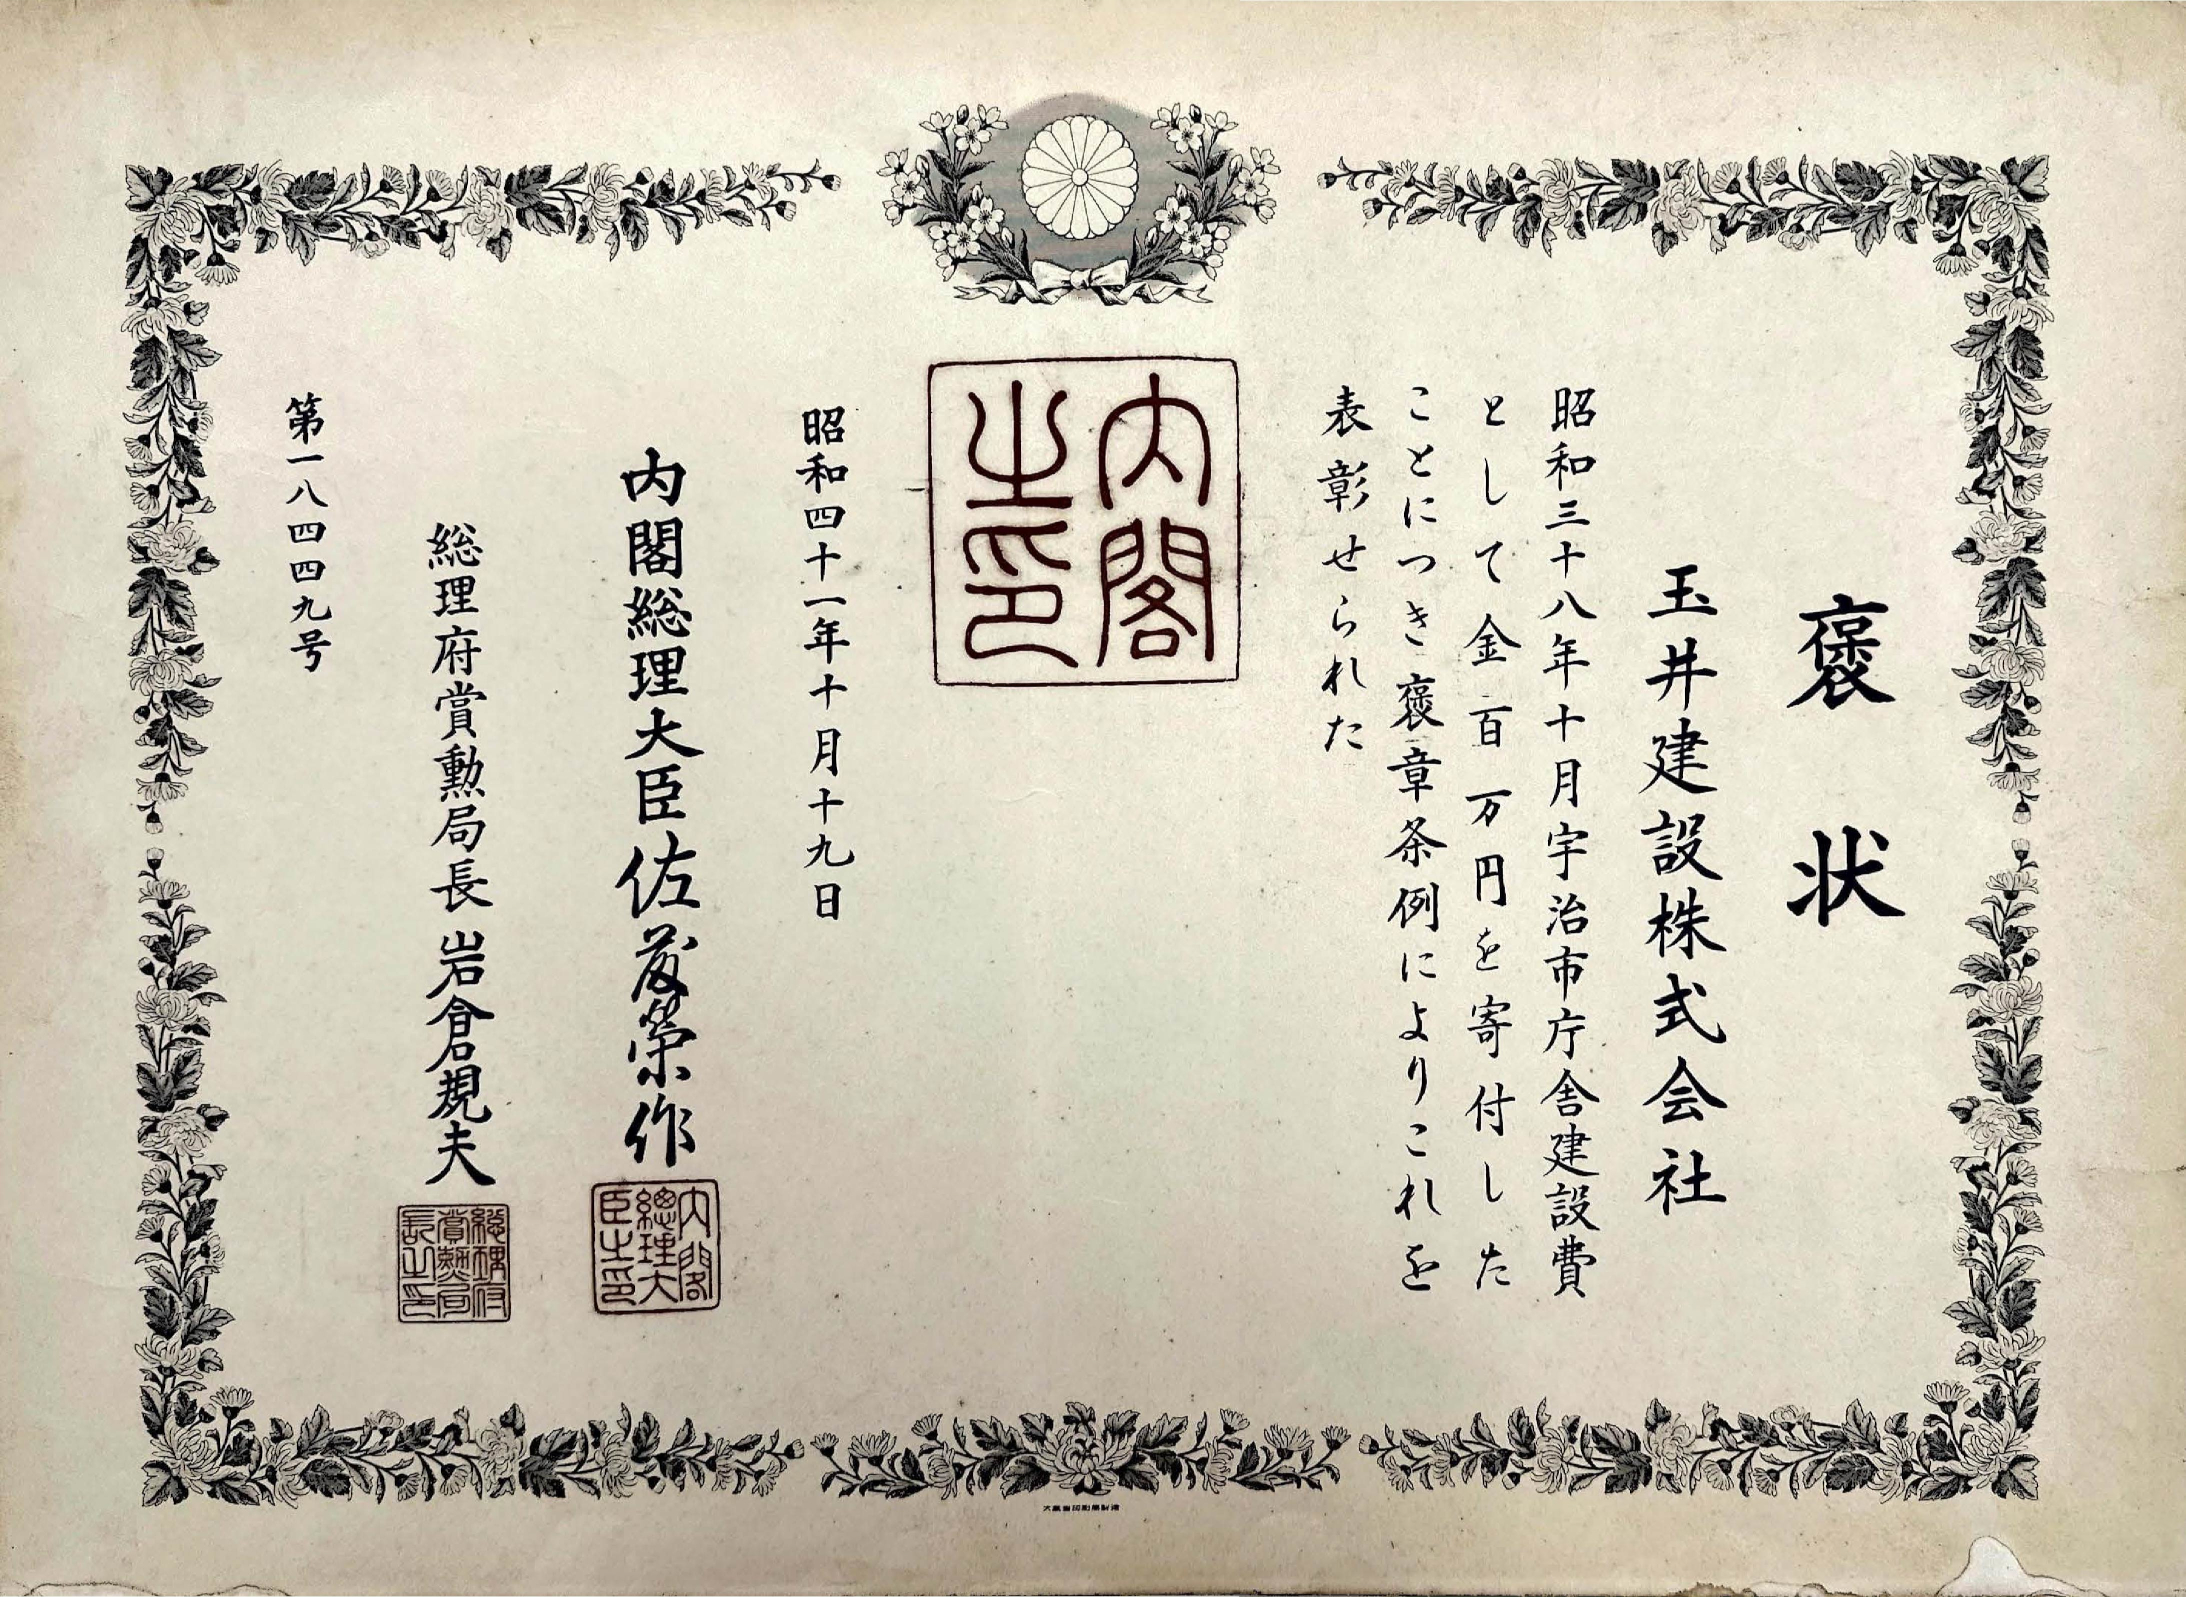 褒状
玉井建設株式会社
昭和三十八年十月宇治市庁舎建設費
として金百万円を寄付した
ことにつき褒章条例によりこれを
表彰せられた
内閣
之印
昭和四十一年十月十九日
内閣総理大臣佐藤榮作
内閣
總理大
臣之印
総理府賞勲局長岩倉規夫
総理府
賞勲局
長之印
第一八四四九号
大蔵省印刷局製造